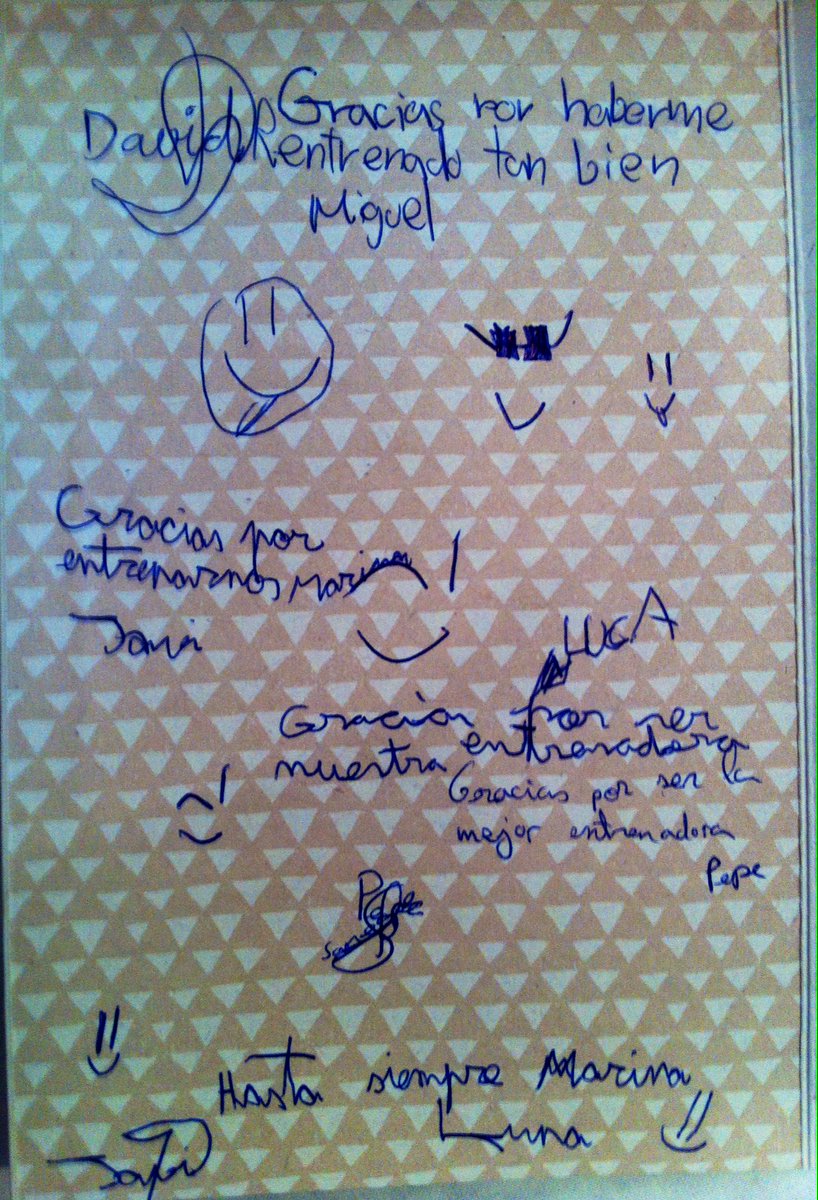 David R
Gracias por haberme
entrenado tan bien
Miguel
Gracias por
entrenarnos Marina
Javi
LUCA
Gracias por ser
nuestra entrenadora
Gracias por ser la
mejor entrenadora
Pepe
Hasta siempre Marina
Luna
Javi